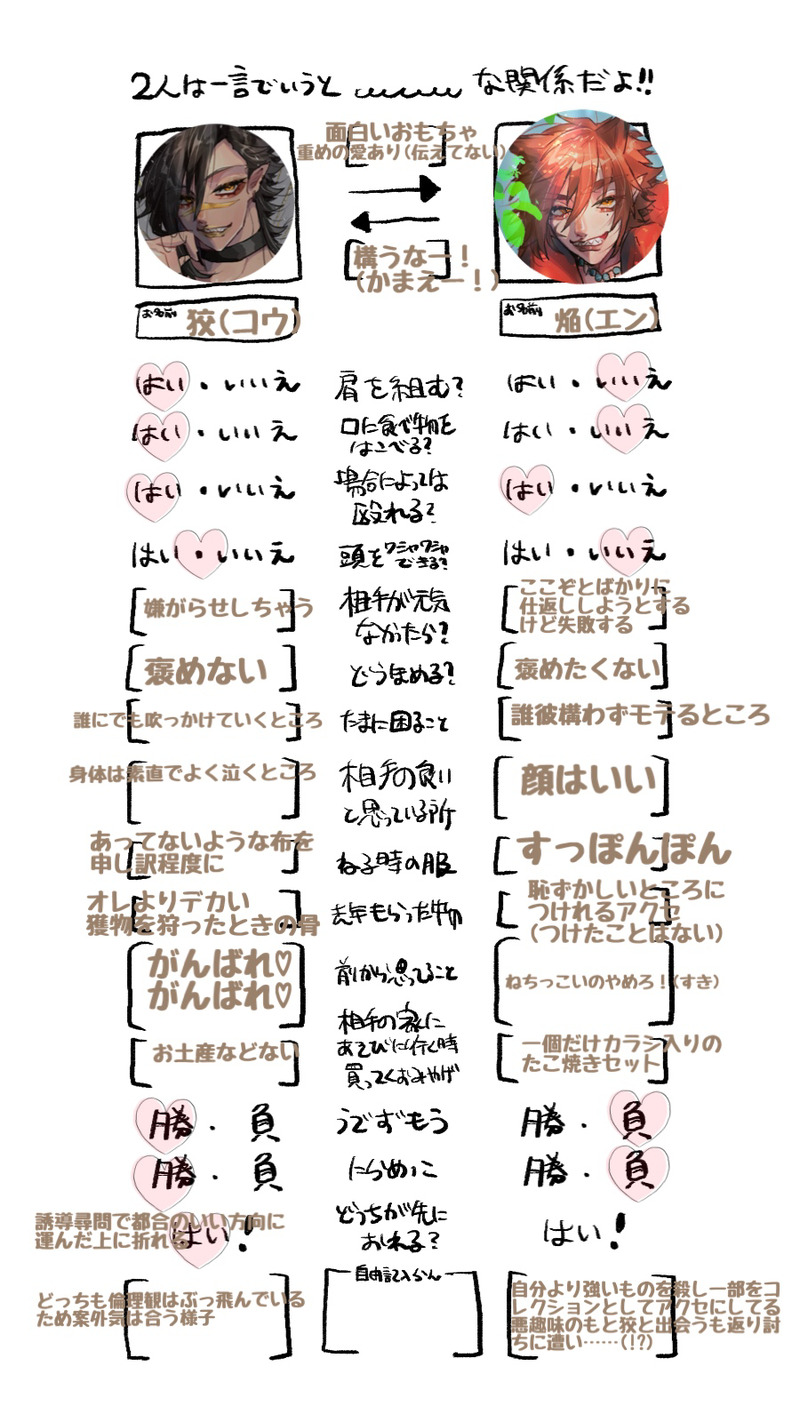 2人は一言でいうと 〰〰〰 な関係だよ!!
面白いおもちゃ
重めの愛あり(伝えてない)
構うなー！
(かまえー！)
お名前 狡(コウ)
お名前 焔(エン)
はい・いいえ 肩を組む? はい・いいえ
はい・いいえ 口に食べ物を はい・いいえ
はこべる?
はい・いいえ 場合によっては はい・いいえ
殴れる?
はい・いいえ 頭をワシャワシャ はい・いいえ
できる?
嫌がらせしちゃう
相手が元気
なかったら?
ここぞとばかりに
仕返ししようとする
けど失敗する
褒めない どうほめる? 褒めたくない
誰にでも吹っかけていくところ たまに困ること 誰彼構わずモテるところ
身体は素直でよく泣くところ
相手の良い
と思っている所
顔はいい
あってないような布を
申し訳程度に
ねる時の服
すっぽんぽん
オレよりデカい
獲物を狩ったときの骨
去年もらった物
恥ずかしいところに
つけれるアクセ
(つけたことはない)
がんばれ♡
がんばれ♡
前から思ってること
ねちっこいのやめろ！(すき)
お土産などない
相手の家に
あそびに行く時
買ってくおみやげ
一個だけカラシ入りの
たこ焼きセット
勝・負 うでずもう 勝・負
勝・負 にらめっこ 勝・負
誘導尋問で都合のいい方向に
運んだ上に折れる
はい!
どっちが先に
おれる?
はい!
どっちも倫理観はぶっ飛んでいる
ため案外気は合う様子
自由記入らん
自分より強いものを殺し一部をコ
レクションとしてアクセにしてる
悪趣味のもと狡と出会うも返り討
ちに遭い……(!?)